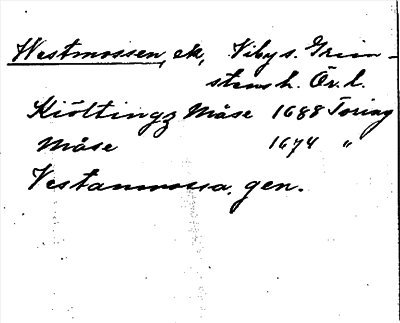 Westmossen, ek, Viby s. Grim-
stens h. Ör. l.
Kiöltingz Måse 1688 Toring
Måse 1674 "
Vestanmossa. gen.